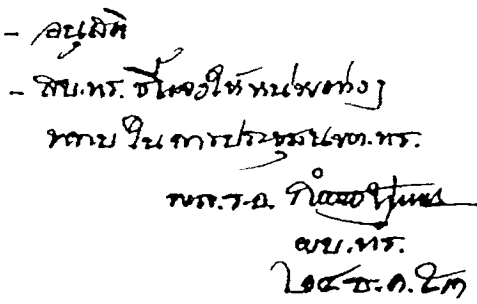 - อนุมัติ
- สบ.ทร. ชี้แจงให้หน่วยต่างๆ
ทราบ ในการประชุม นขต.ทร.
พล.ร.อ.
ผบ.ทร.
๒๔ ธ.ค. ๒๓